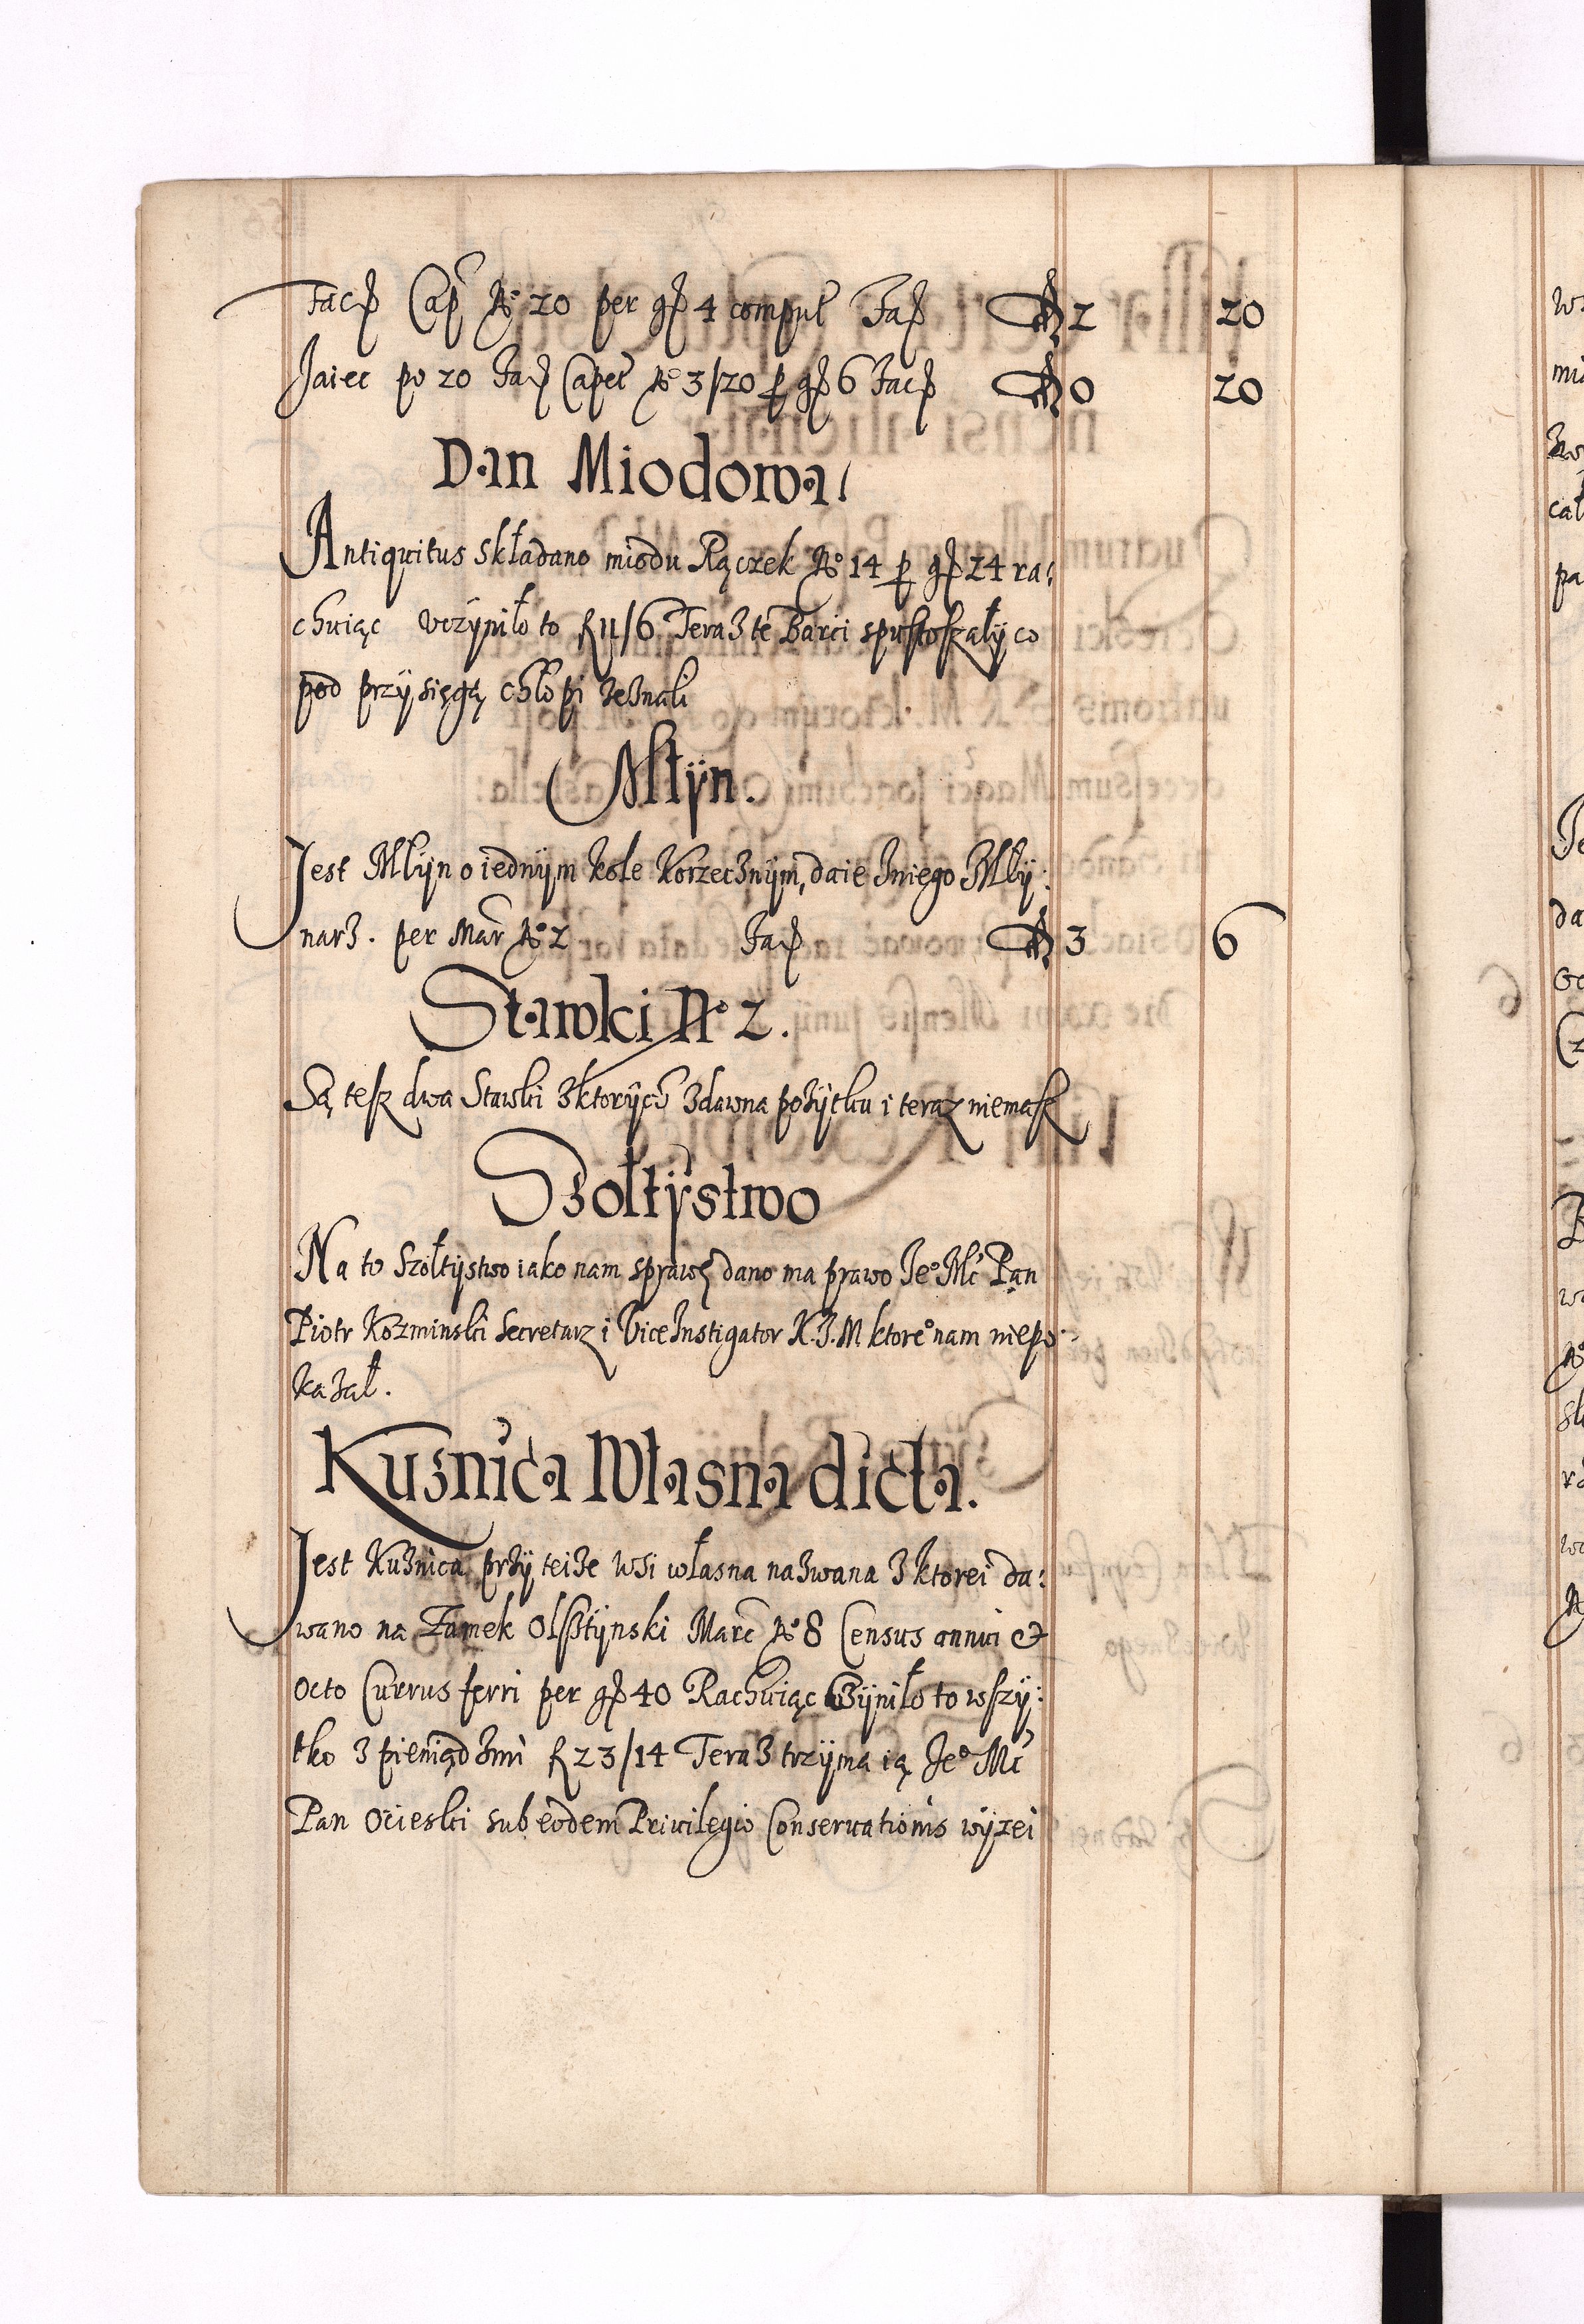 Facit Cap No 20 per gr 4 comput Facit fl 2 20
Jaiec po 20 Facit Capet No 3/20 p gr 6 Facit fl 0 20
Dan Miodowa
Antiquitus składano miodu Rączek No 14 p gr 24 ra:
chuiąc vczÿniło to fl 11/6 Teraz te Barci spustoszałÿ co
pod przÿsięgą chłopi zeznali
Młÿn.
Jest Młÿn o iednÿm kole Korzecznÿm, daie zniego Młÿ:
narz. per Mar No 2 Facit fl 3 6
Stawki No 2.
Są tesz dwa Stawki z ktorÿch zdawna pożÿtku i teraz niemasz
Szołtÿstwo
Na to Szołtÿstwo iako nam sprawę dano ma prawo Jeo Mć Pan
Piotr Kozminski Secretarz i Vice Instigator K. J. M ktoreo nam niepo:
kazał.
Kuznica Własna dicta.
Jest Kuznica przÿ teize wsi własna nazwana z ktorei da:
wano na Zamek Olsztÿnski Marc No 8 Census annui et
octo Currus ferri per gr 40 Rachuiąc Czÿniło to wszÿ:
tko z pieniądzmi fl 23/14 Teraz trzÿma ią Jeo Mć
Pan Ocieski sub eodem Priuilegio Conseruationis wÿzei